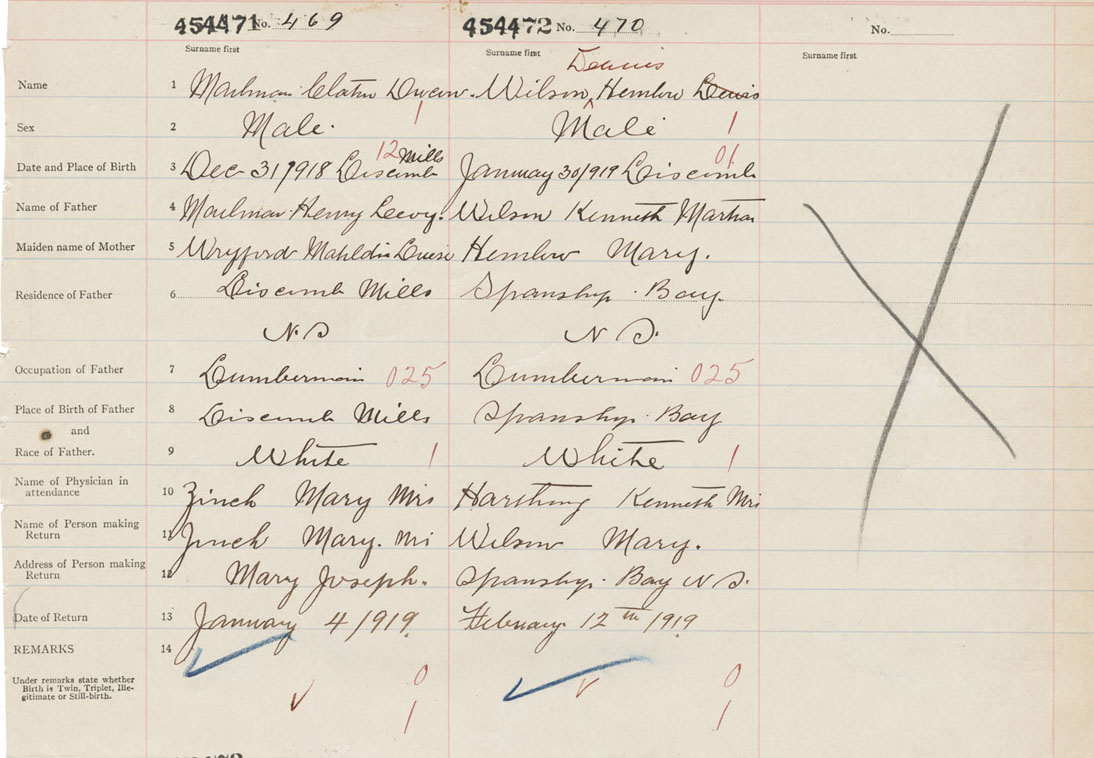 454471 No. 469
454472 No. 470
No.
Surname first
Surname first
Surname first
Dennis
Name 1 Mailman Claton Owen. Wilson, Hemlow Denis
Sex 2 Male. 1 Male 1
12 Mills 01
Date and Place of Birth 3 Dec 31/1918 Liscomb January 30/1919 Liscomb
Name of Father 4 Mailman Henry Leevy. Wilson Kenneth Martin
Maiden name of Mother 5 Louise Hemlow Mary.
Residence of Father 6 Liscomb Mills Spanship Bay.
N.S N S.
Occupation of Father 7 Lumberman 025 Lumberman 025
Place of Birth of Father 8 Liscomb Mills Spanship Bay
and
Race of Father. 9 White 1 White 1
Name of Physician in
attendance 10 Zinck Mary Mrs Kenneth Mrs
Name of Person making
Return 11 Zinck Mary. Mrs Wilson Mary.
Address of Person making
Return 12 Mary Joseph. Spanship Bay N S.
Date of Return 13 January 4/1919. February 12th 1919
REMARKS 14
Under remarks state whether
Birth is Twin, Triplet, Ille-
gitimate or Still-birth.
0 0
1 1